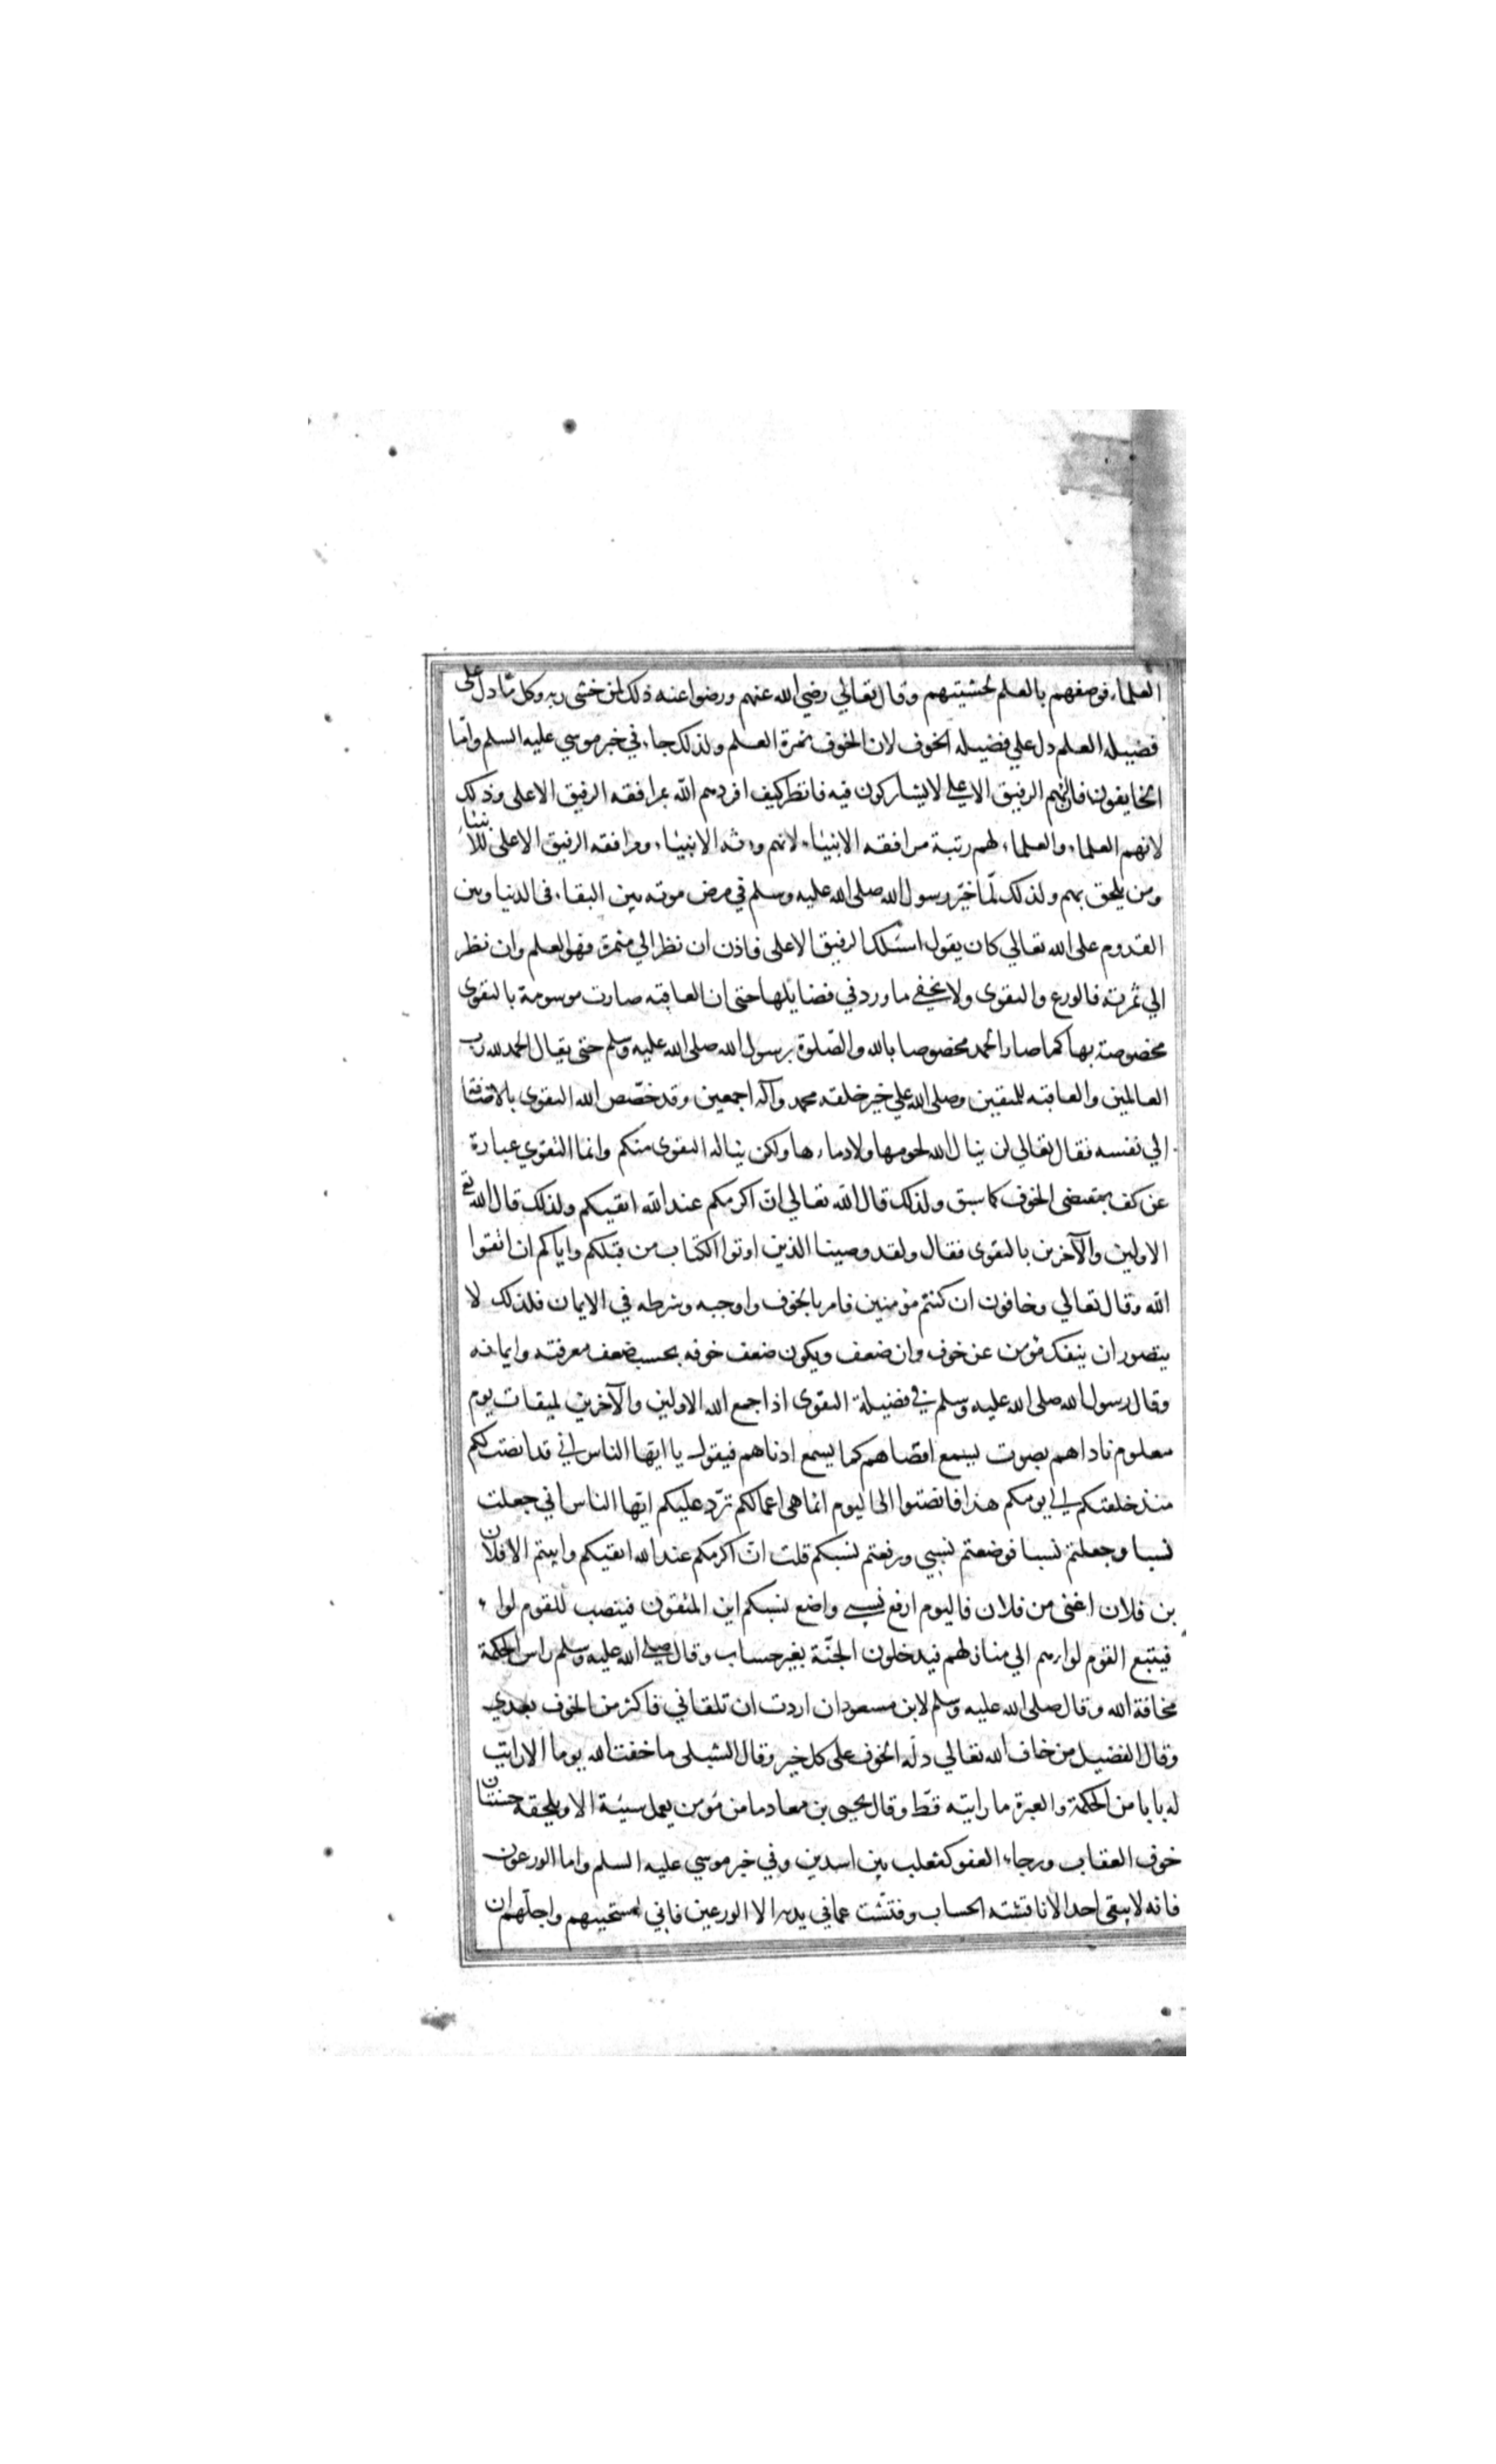 العلماء فوصفهم بالعلم لخشيتهم وقال تعالي رضي الله عنهم ورضوا عنه ذلك لمن خشى ربه وكل ما دل على
فضيله العلم دل علي فضيله الخوف لان الخوف ثمرة العلم ولذلك جاء في خبر موسي عليه السلم وامّا
الخايفون فان لهم الرفيق الاعلي لا يشاركون فيه فانظر كيف افردهم الله بمرافقه الرفيق الاعلى وذلك
لانهم العلماء والعلماء لهم رتبة مرافقه الانبياء لانهم ورثه الانبياء ومرافقه الرفيق الاعلى للانبياء
ومن يلحق بهم ولذلك لمّا خيّر رسول الله صلى الله عليه وسلم في مرض موته بين البقاء فى الدنيا وبين
القدوم على الله تعالي كان يقول اسئلك الرفيق الاعلى فاذن ان نظر الي مثمرة فهو العلم وان نظر
الي ثمرته فالورع والتقوى ولا يخفي ما ورد في فضايلها حتى ان العاقبه صارت موسومة بالتقوى
مخصوصة بها كما صار الحمد مخصوصا بالله والصّلوة برسول الله صلى الله عليه وسلم حتى يقال الحمد لله رب
العالمين والعاقبه للمتقين وصلى الله علي خير خلقه محمد وآله اجمعين وقد خصّص الله التقوى بالاضافة
الي نفسه فقال تعالي لن ينال الله لحومها ولا دماءها ولكن يناله التقوى منكم وانما التقوي عبارة
عن كف بمقتضى الخوف كما سبق ولذلك قال الله تعالي انّ اكرمكم عند الله اتقيكم ولذلك قال الله تع
الاولين والآخرين بالتقوى فقال ولقد وصينا الذين اوتوا الكتاب من قبلكم واياكم ان اتقوا
الله وقال تعالي وخافون ان كنتم مؤمنين فامر بالخوف واوجبه وشرطه في الايمان فلذلك لا
يتصور ان ينفك مؤمن عن خوف وان ضعف ويكون ضعف خوفه بحسب ضعف معرفته وايمانه
وقال رسول الله صلى الله عليه وسلم في فضيلة التقوى اذا جمع الله الاولين والآخرين لميقات يوم
معلوم ناداهم بصوت يسمع اقصاهم كما يسمع ادناهم فيقول يا ايّها الناس اني قد انصتّ لكم
منذ خلقتكم الي يومكم هذا فانصتوا الى اليوم انما هى اعمالكم تردّ عليكم ايّها الناس اني جعلت
نسبا وجعلتم نسبا فوضعتم نسبي ورفعتم نسبكم قلت انّ اكرمكم عند الله اتقيكم وابيتم الا فلان
بن فلان اغنى من فلان فاليوم ارفع نسبي واضع نسبكم اين المتقون فينصب للقوم لواء
فيتبع القوم لوارهم الي منازلهم فيدخلون الجنّة بغير حساب وقال صلي الله عليه وسلم راس الحكمة
مخافة الله وقال صلى الله عليه وسلم لابن مسعود ان اردت ان تلقاني فاكثر من الخوف بعدي
وقال الفضيل من خاف الله تعالي دلّه الخوف على كل خير وقال الشبلى ما خفت الله يوما الا رايت
له بابا من الحكمة والعبرة ما رايته قطّ وقال يحيى بن معاد ما من مؤمن يعمل سيئة الا ويلحقه حسنتان
خوف العقاب ورجاء العفو كثعلب بين اسدين وفي خبر موسي عليه السلم واما الورعون
فانه لا يبقى احد الا ناقشته الحساب وفتّشت عما في يديه الا الورعين فاني استحييهم واجلّهم ان